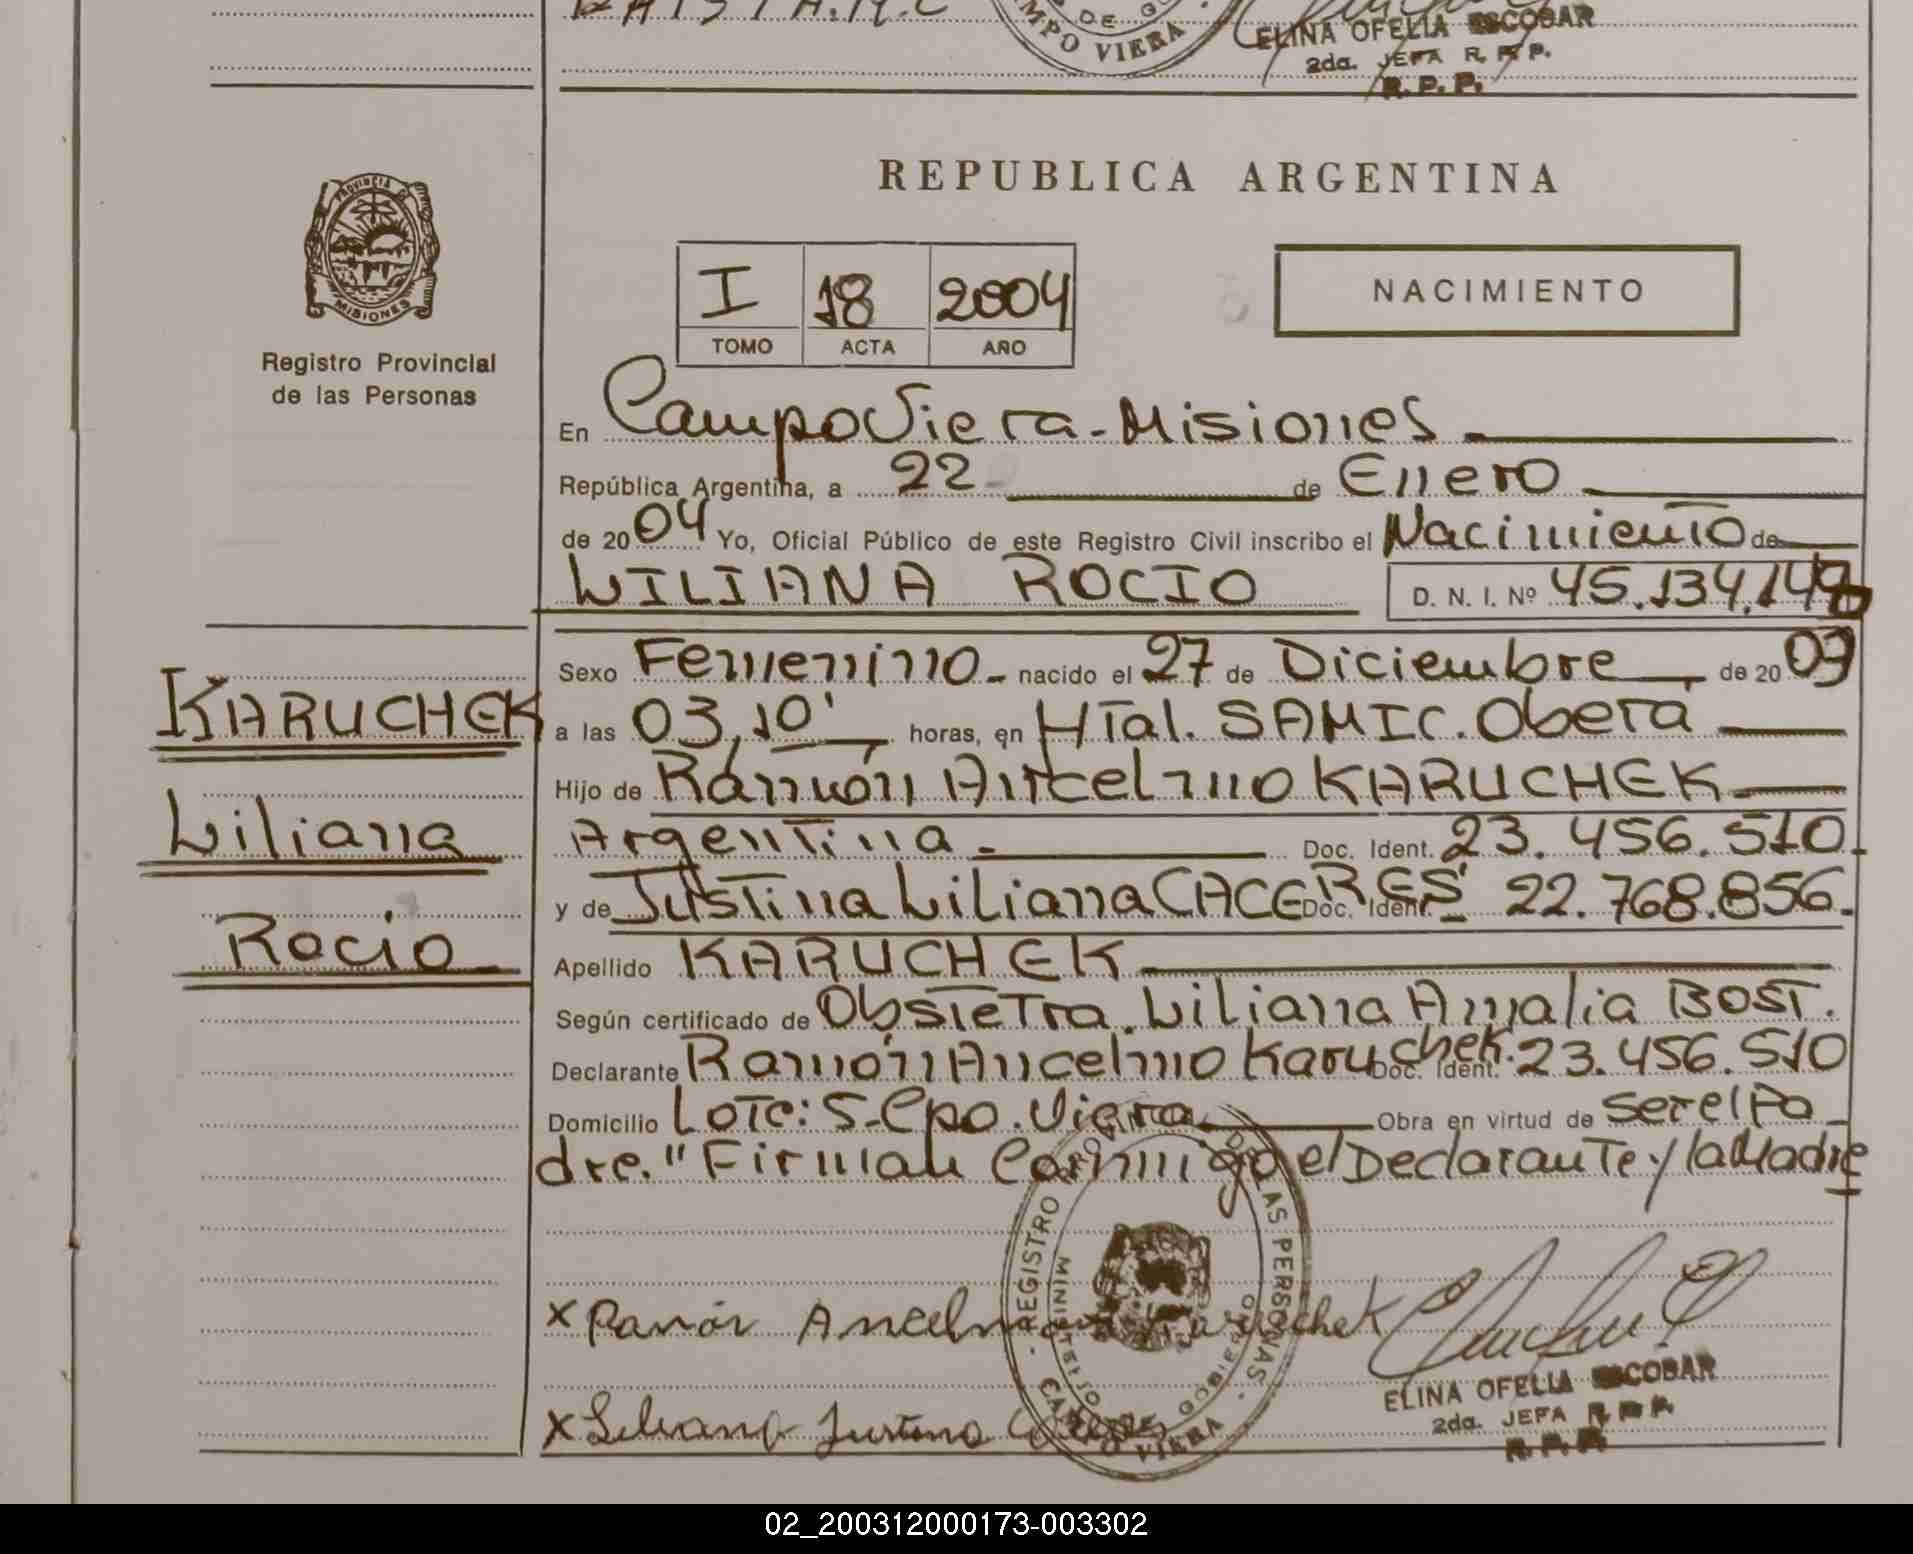 ELINA OFELIA ESCOBAR
2da. JEFA R. P. P.
R. P. P.
CAMPO VIERA
REPUBLICA ARGENTINA
PROVINCIA DE MISIONES
Registro Provincial
de las Personas
I 18 2004
TOMO ACTA AÑO
NACIMIENTO
En Campo Viera - Misiones
República Argentina, a 22 de Enero
de 2004 Yo, Oficial Público de este Registro Civil inscribo el Nacimiento de
LILIANA ROCIO D. N. I. Nº 45.134.14
Sexo Femenino - nacido el 27 de Diciembre de 2003
KARUCHEK
Liliana
Rocio
a las 03,10' horas, en HTal. SAMIC. Obera
Hijo de Ramón Ancelmo KARUCHEK
Argentina - Doc. Ident. 23.456.510
y de Justina Liliana CACERES Doc. Ident. 22.768.856.
Apellido KARUCHEK
Según certificado de Obstetra. Liliana Amalia BOST.
Declarante Ramón Ancelmo Karuchek. Doc. Ident. 23.456.510
Domicilio Lote: 5 - Cpo. Viera Obra en virtud de ser el Pa
dre. "Firman Conmigo el Declarante y la Madre
x Ramón Ancelmo Karuchek
x Liliana Justina
REGISTRO DE LAS PERSONAS
MINISTERIO DE GOBIERNO
CAMPO VIERA
ELINA OFELIA ESCOBAR
2da. JEFA R. P. P.
R. P. P.
02_200312000173-003302